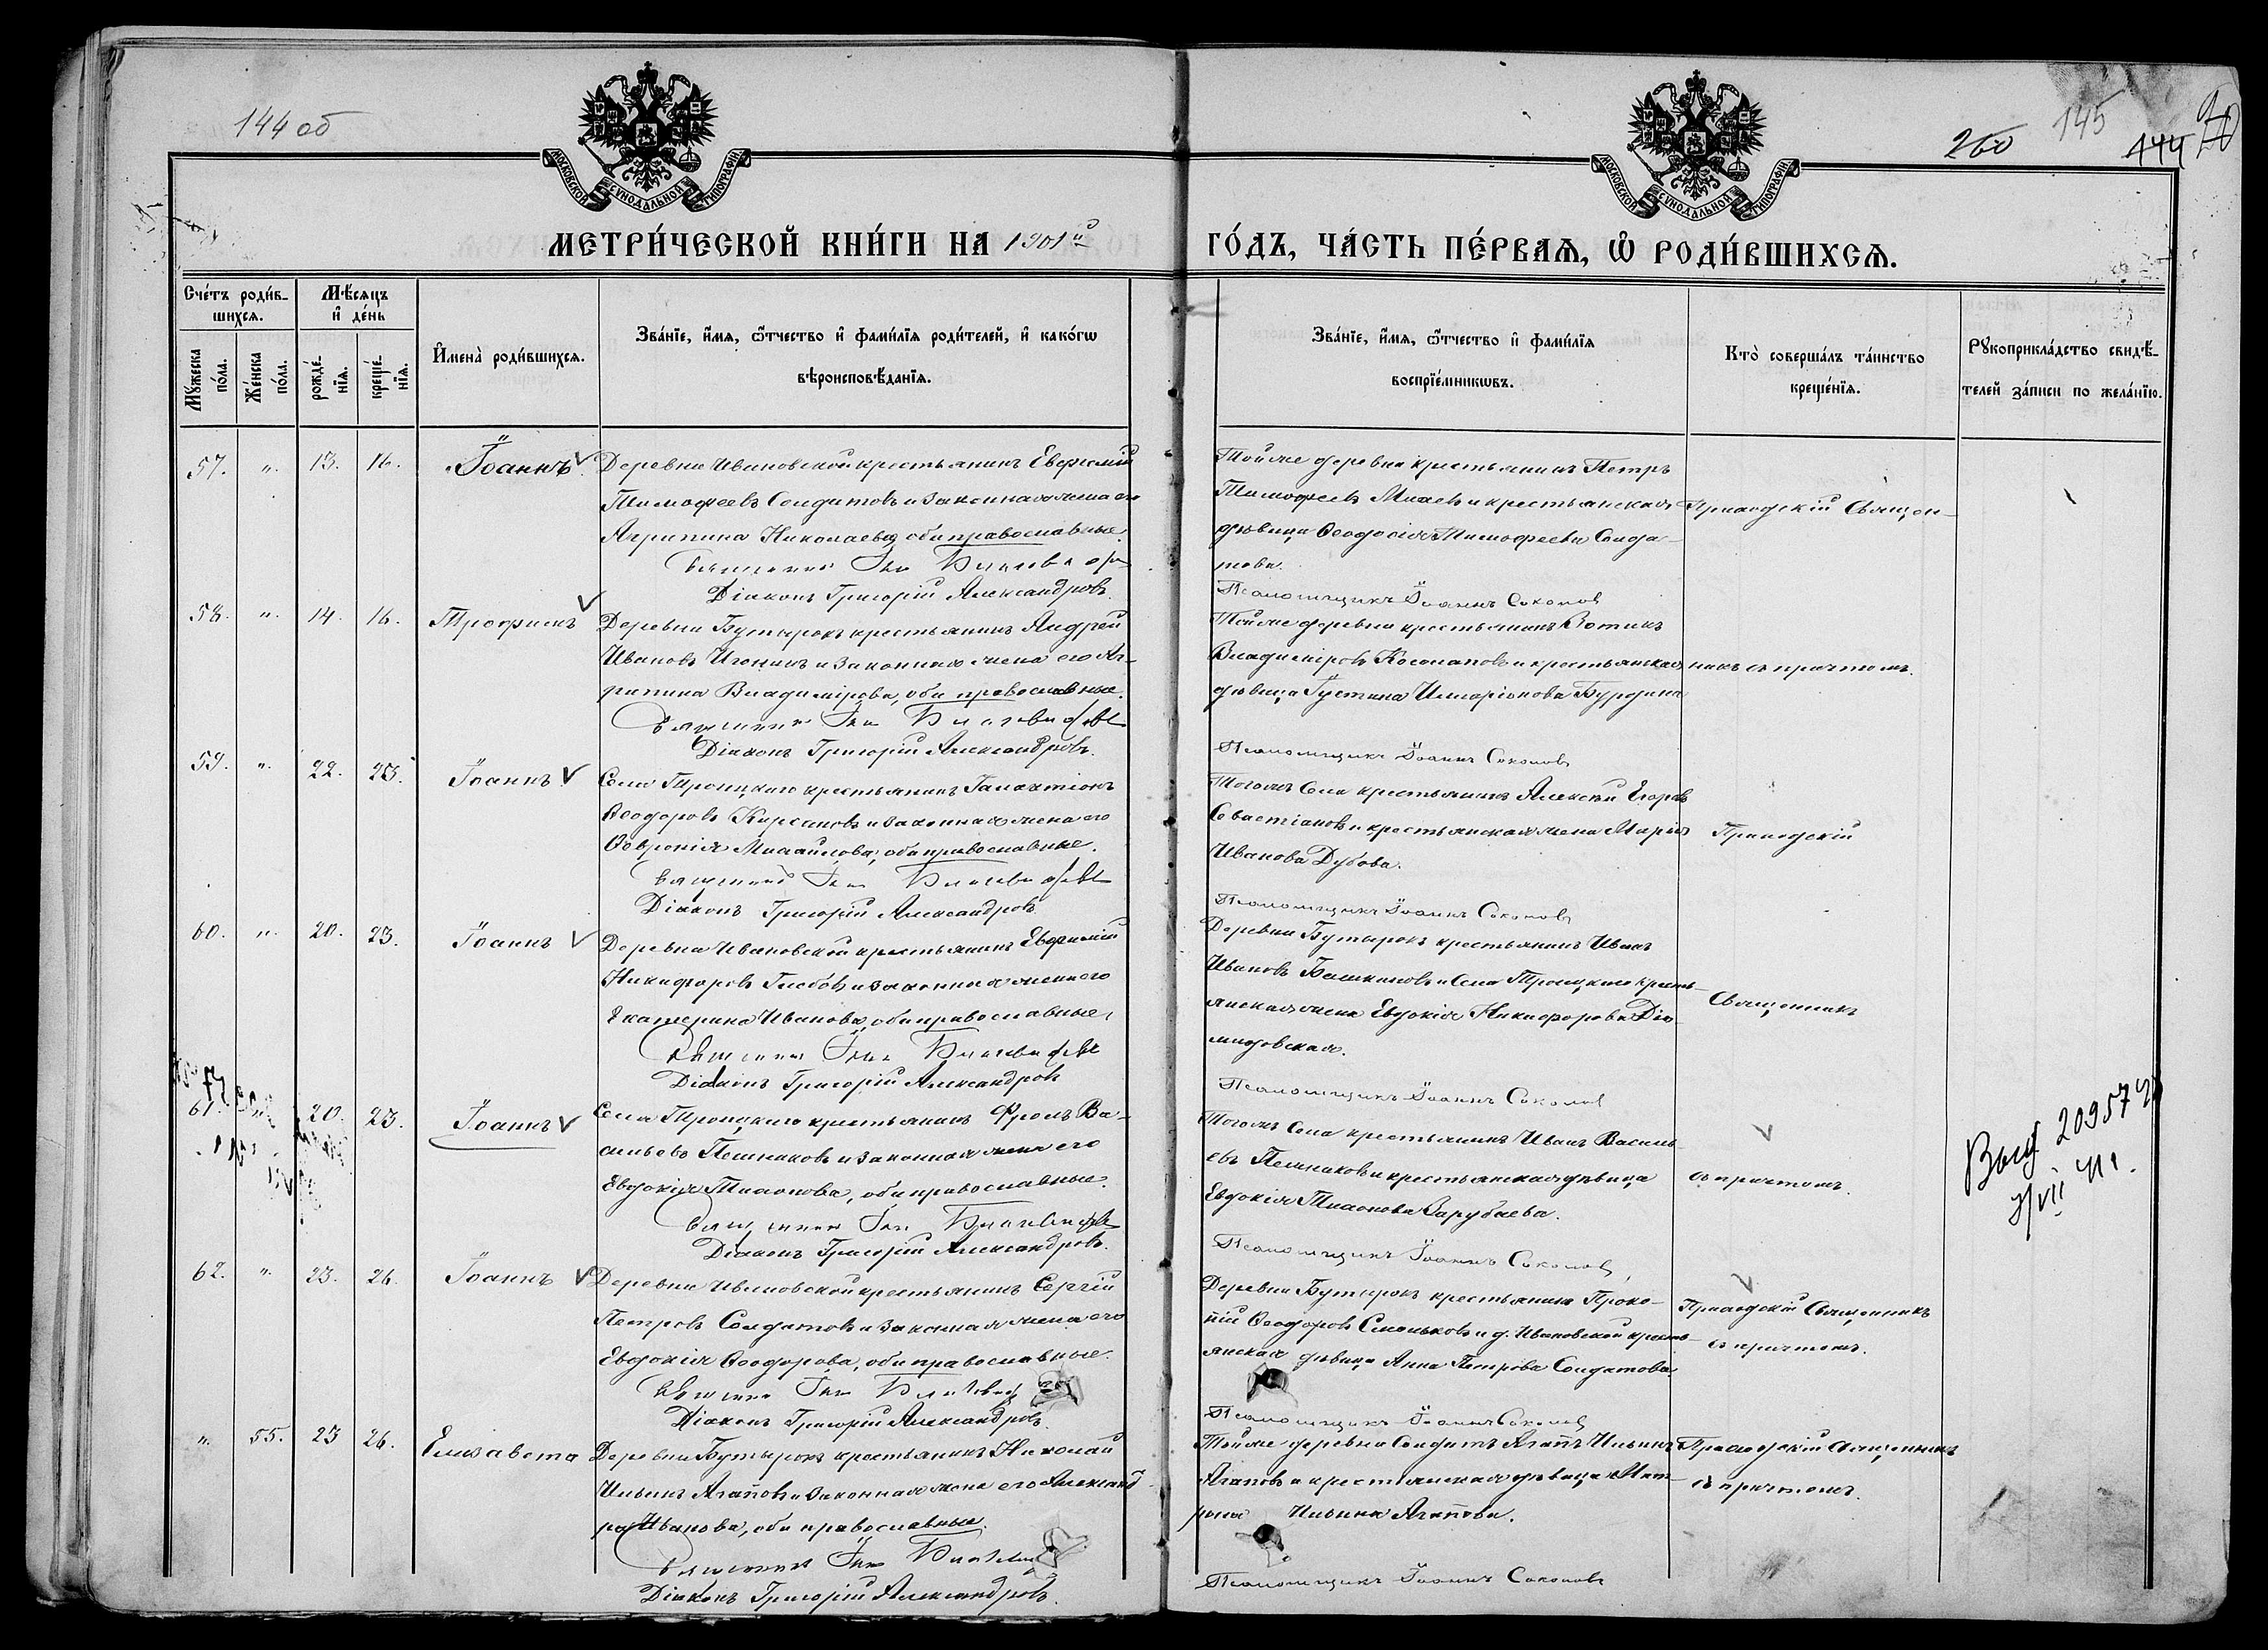 144 об
260
145
144
МОСКОВСКОЙ СѴНОДАЛЬНОЙ ТИПОГРАФІИ
МОСКОВСКОЙ СѴНОДАЛЬНОЙ ТИПОГРАФІИ
МЕТРИ́ЧЕСКОЙ КНИ́ГИ НА 1901й
ГО́ДЪ, ЧА́СТЬ ПЕ́РВАЯ, Ѡ҆ РОДИ́ВШИХСЯ.
Сче́тъ роди́в-
шихсѧ.
Мѣ́сяцъ
и҆ де́нь
Мꙋ́жеска
по́ла.
Же́нска
по́ла.
рожде́-
нїѧ.
креще́-
нїѧ.
И҆мена̀ роди́вшихсѧ.
Зва́нїе, и҆́мѧ, ѻ҆́тчество и҆ фами́лїѧ роди́телей, и҆ како́гѡ
вѣроисповѣ́данїѧ.
Зва́нїе, и҆́мѧ, ѻ҆́тчество и҆ фами́лїѧ
воспрїе́мникѡвъ.
Кто̀ соверша́лъ та́инство
креще́нїѧ.
Рꙋкоприкла́дство свидѣ́-
телей за́писи по жела́нїю.
57. „ 13. 16. Іоаннъ Деревни Ивановской крестьянинъ Евфимій
Тимофеевъ Солдатовъ и законная жена его
Агрипина Николаева, оба православные.
Священникъ
Діаконъ Григорій Александровъ.
Тойже деревни крестьянинъ Петръ
Тимофеевъ и крестьянская
дѣвица Ѳеодосія Тимофеева Солда-
това.
Псаломщикъ Іоаннъ Соколовъ
Приходскій Священ-
58. „ 14. 16. Трофимъ Деревни Бутырокъ крестьянинъ Андрей
Ивановъ и законная жена его Аг-
рипина Владимірова, оба православные.
Священникъ
Діаконъ Григорій Александровъ.
Тойже деревни крестьянинъ
Владиміровъ Косолаповъ и крестьянская
дѣвица Іустина Илларіонова
Псаломщикъ Іоаннъ Соколовъ
никъ съ причтомъ.
59. „ 22. 23. Іоаннъ Села Троицкаго крестьянинъ Галактіонъ
Ѳеодоровъ Кирсановъ и законная жена его
Ѳеvронія Михайлова, оба православные.
Священникъ
Діаконъ Григорій Александровъ.
Тогожъ Села крестьянинъ Алексѣй Егоровъ
Севастіановъ и крестьянская жена Марія
Иванова Дубова.
Псаломщикъ Іоаннъ Соколовъ
Приходскій
60. „ 20. 23. Іоаннъ Деревни Ивановской крестьянинъ Евфимій
Никифоровъ Глебовъ и законная жена его
Екатерина Иванова, оба православные.
Священникъ
Діаконъ Григорій Александровъ
Деревни Бутырокъ крестьянинъ Иванъ
Ивановъ и Села Троицкаго кресть-
янская жена Евдокія Никифорова Дио-
мидовская.
Псаломщикъ Іоаннъ Соколовъ
Священникъ
61. 20. 23. Іоаннъ Села Троицкаго крестьянинъ Фролъ Ва-
сильевъ Пешнаковъ и законная жена его
Евдокія Тихонова, оба православные.
Священникъ
Діаконъ Григорій Александровъ.
Тогожъ Села крестьянинъ Иванъ Василь-
евъ Пешнаковъ и крестьянская дѣвица
Евдокія Тихонова Зарубаева.
Псаломщикъ Іоаннъ Соколовъ
съ причтомъ.
Выд 20957
VII 41 г.
62. „ 23. 26. Іоаннъ Деревни Ивановской крестьянинъ Сергій
Петровъ Солдатовъ и законная жена его
Евдокія Ѳеодорова, оба православные.
Священникъ
Діаконъ Григорій Александровъ.
Деревни Бутырокъ крестьянинъ Проко-
пій Ѳеодоровъ и д. Ивановской кресть-
янская дѣвица Анна Петрова Солдатова.
Псаломщикъ Іоаннъ Соколовъ
Приходскій Священникъ
съ причтомъ.
„ 55. 23 26. Елизавета Деревни Бутырокъ крестьянинъ Николай
Ильинъ Агаповъ и законная жена его Александ-
ра Иванова, оба православные.
Священникъ
Діаконъ Григорій Александровъ.
Тойже деревни Солдатъ Ильинъ
Агаповъ и крестьянская дѣвица Мат-
рона Ильина Агапова.
Псаломщикъ Іоаннъ Соколовъ
Приходскій Священникъ
съ причтомъ.